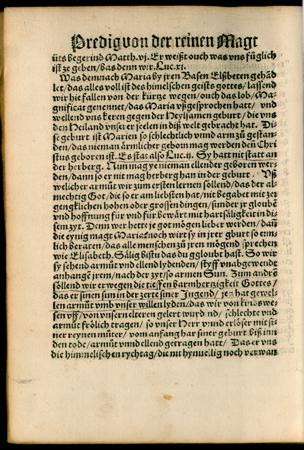 Predig von der reinen Magt
üts begerind Matth. vj. Er weißt ouch was uns füglich
ist ze geben/ bas denn wir. Luc. xj.
Was demnach Maria by jren Basen Elsbeten gehäd-
let/ das alles voll ist des himelschen geists gottes/ lassend
wir hie fallen von der kürtze wegen/ ouch das lob/ Ma-
gnificat genennet/ das Maria ußgesprochen hatt/ und
wellend uns keren gegen der Heylsamen geburt/ die uns
den Heiland unser erlösten in diß welt gebracht hat. Di-
se geburt ist Marien so schlechtlich und arm zů gestan-
den/ das nieman ärmlicher gehom mag werden den Chri-
stus geboren ist. Es stat also Luc. ij. Sy hatt nit statt an
der herberg. Nun mag ye nieman ellender geboren wer-
den/ dann so er nit mag herberg han in der geburt. Uß
welicher armůt wir zum ersten lernen sollend/ das der al-
mechtig Got/ die so er am liebsten hat/ nit begabet mit zer
gengklichen hohen oder grossen dingen/ sunder jr gloubē
und hoffnung für und für bewärt mit hartsäligkeit in di-
sem zyt. Denn wer hette je got mögen lieber werden/ dañ
die eynig magt Maria: Noch wirt sy in jrer gburt so ent-
lich beraten/ das alle menschen zů jren mögend sprechen
wie Elisabeth. Sälig bistu das du gloubt hast. So wir
sy sehend armůt und ellend lyden/ styff unabgewendt
anhangen jrem/ nach der zyt/ so armen Sun. Zum andrē
söllend wir er wegen die tieffen barmhertzigkeit Gottes/
das er sinen sun in der zart siner Jugend/ je hat gwel-
len armůt und unser willen lyden/ das wir von kriswe-
sen uff/ von unsern eltern gelert wurdind/ schlechte und
armůt frölich tragen/ so unser Herr und erlöser mit si-
ner reynen můter/ vom anfang har siner geburt biß inn
den tode/ armůt und ellend getragen hatt/ Das er uns
die himmelischen rychtag/ die nit hynuellig noch verwan